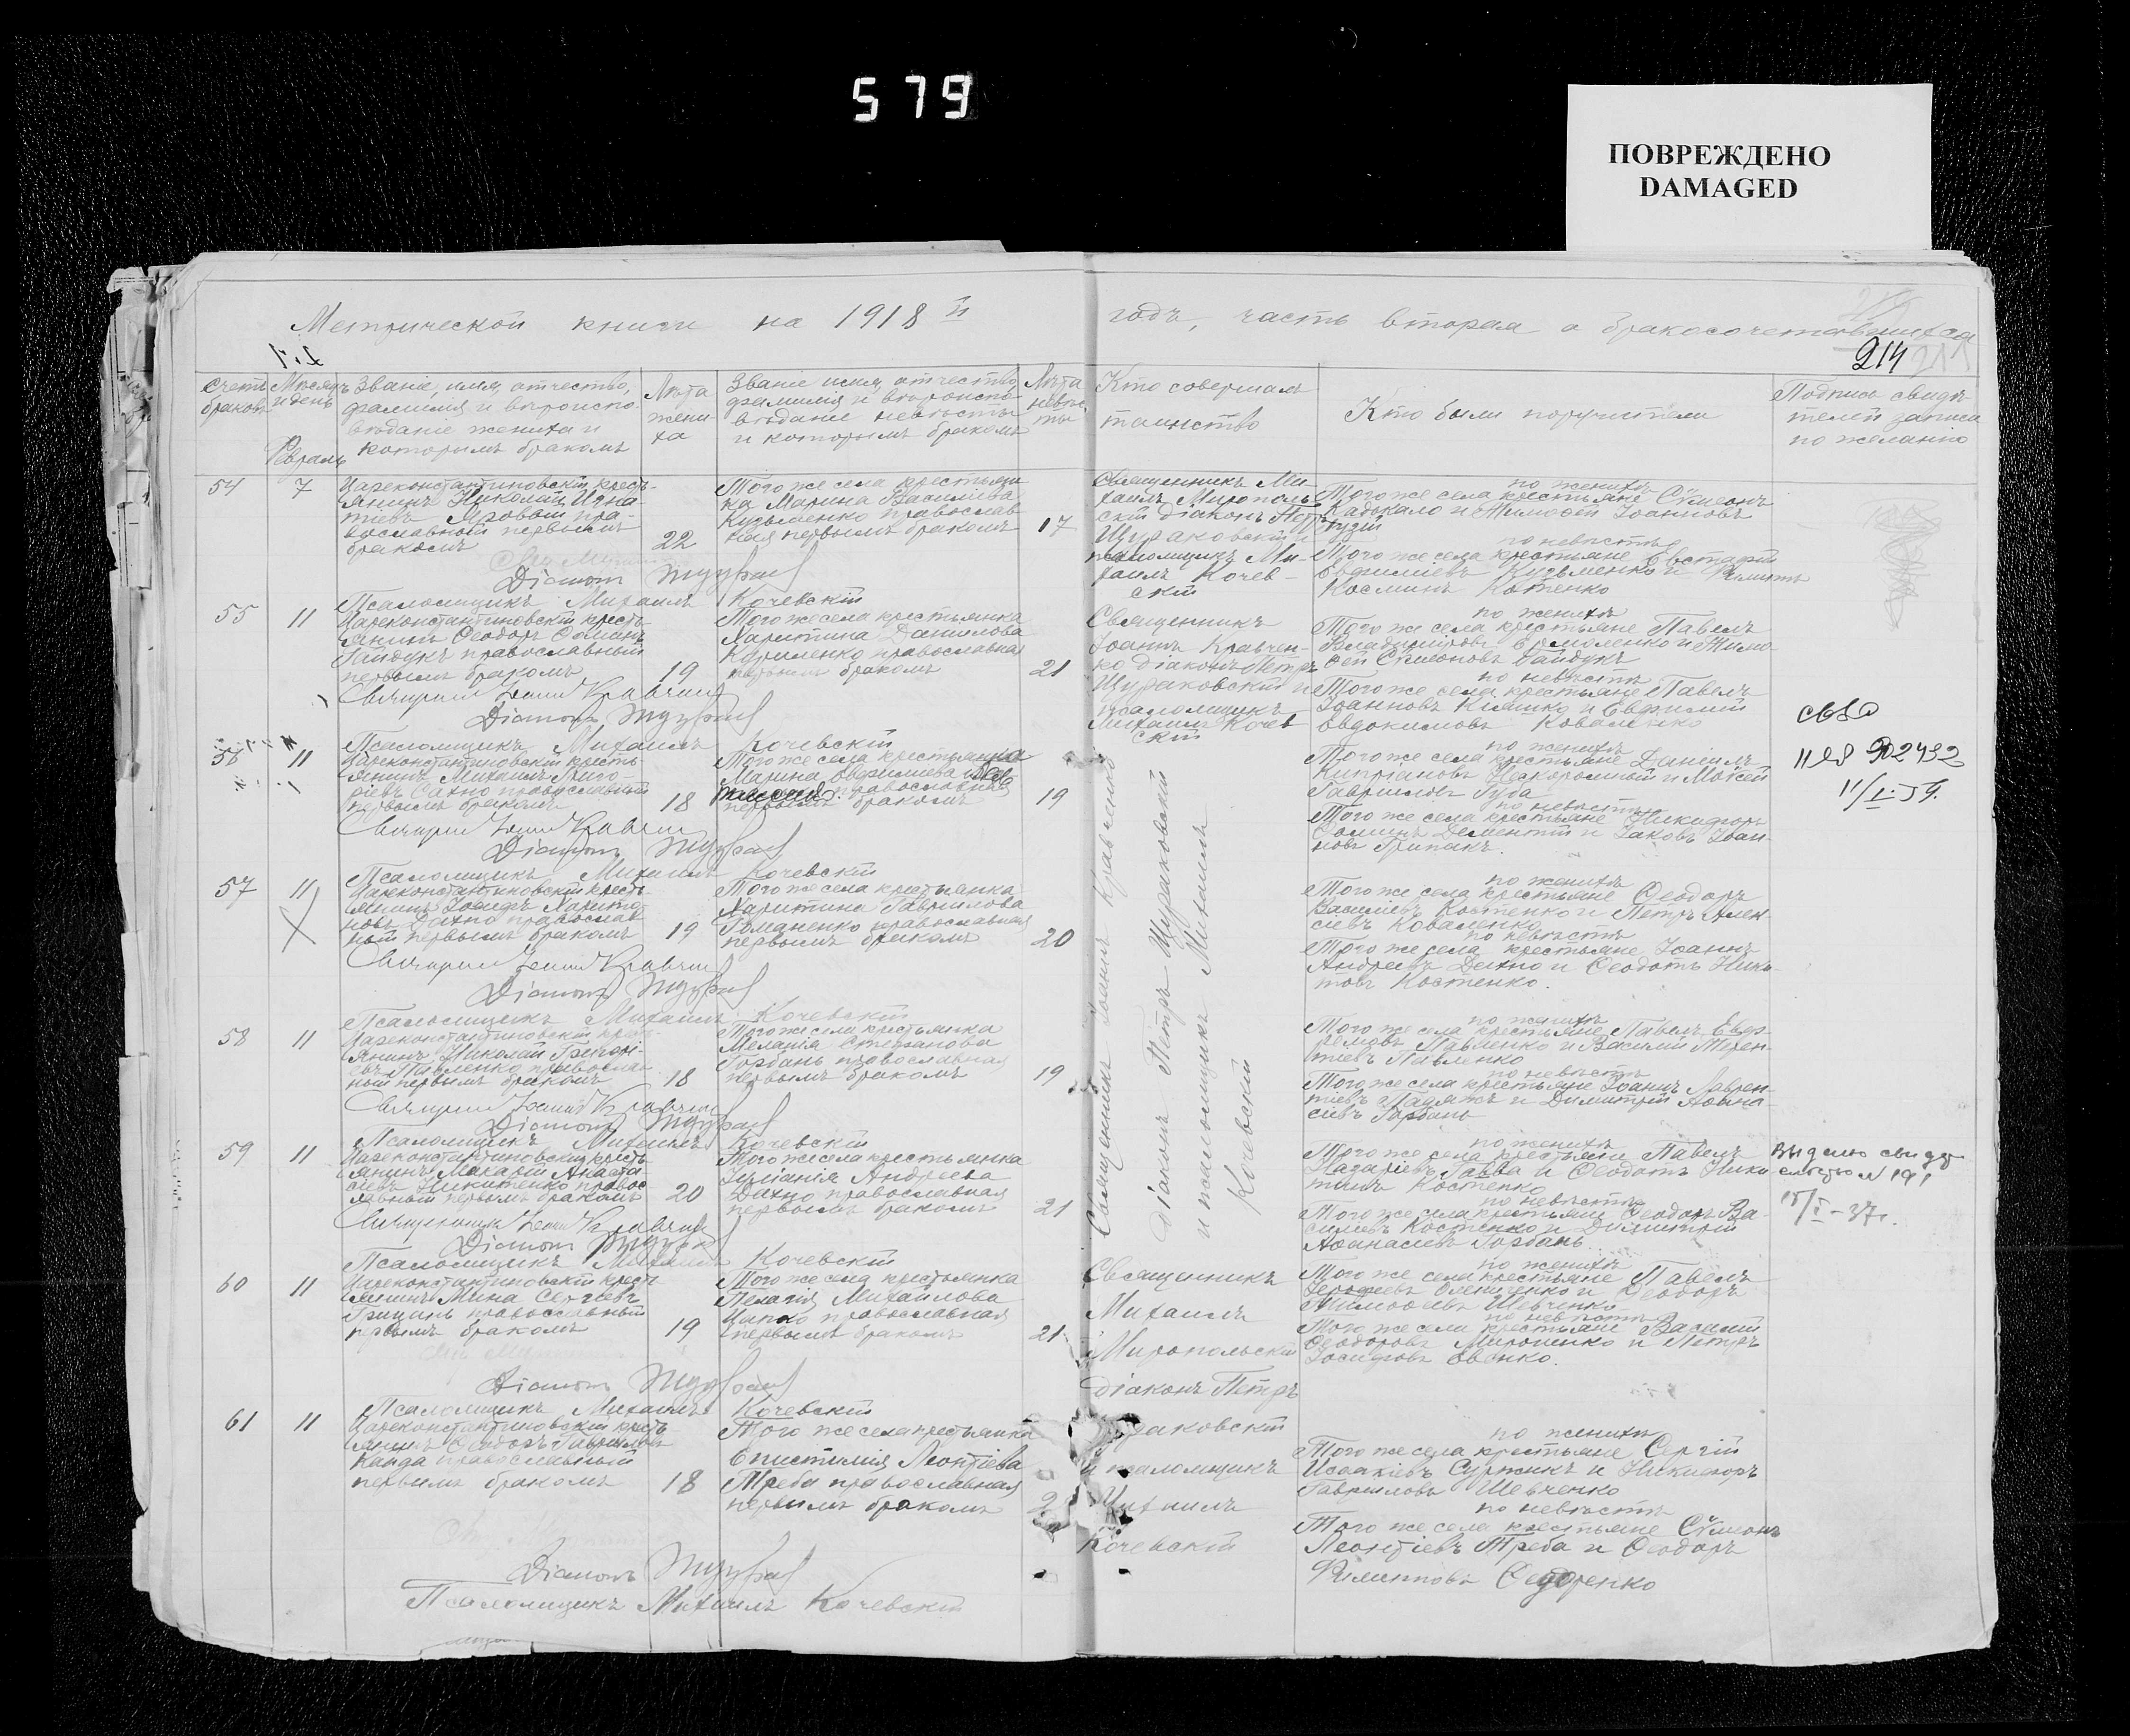 579
ПОВРЕЖДЕНО
DAMAGED
Метрической книги на 1918 й годъ, часть вторая о бракосочетавшихся
214
Счетъ браковъ
Мѣсяцъ и день
Званіе, имя, отчество,
фамилія и вѣроиспо-
вѣданіе жениха и
которымъ бракомъ
Лѣта
жени
ха
Званіе имя, отчество,
фамилія и вѣроиспо
вѣданіе невѣсты
и которымъ бракомъ
Лѣта
невѣс
ты
Кто совершалъ
таинство
Кто были поручители
Подпись свидѣ
телей записи
по желанію
Февраль
54
7
Цареконстантиновскій кресть-
янинъ Николай Игна
тіевъ пра-
вославный первымъ
бракомъ
22
Того же села крестьян
ка Марина Василіева
Кузьменко православ
ная первымъ бракомъ
17
Священникъ Ми-
хаилъ Мирополь
скій діаконъ Петр
Щураковскій и
псаломщикъ Ми-
хаилъ Кочев-
скій
по женихѣ
Того же села крестьяне Сѵмеонъ
Кадокало и Тимофей Іоанновъ
Гузій
по невѣстѣ
Того же села крестьяне Евстафій
Евфиміевъ Кузьменко и Филиппъ
Косминъ Котенко
Діаконъ
Псаломщикъ Михаилъ Кочевскій
55
11
Цареконстантиновскій кресть
янинъ Ѳеодоръ Ѳоминъ
Гайдукъ православный
первымъ бракомъ
19
Того же села крестьянка
Харитина Даніилова
Куриленко православная
первымъ бракомъ
21
Священникъ
Іоаннъ Кравчен-
ко діаконъ Петръ
Щураковскій и
псаломщикъ
Михаилъ Кочев
скій
по женихѣ
Того же села крестьяне Павелъ
Владиміровъ Ермоленко и Тимо
фей Сѵмеоновъ Гайдукъ
по невѣстѣ
Того же села крестьяне Павелъ
Іоанновъ Климко и Евфимій
Евдокимовъ Коваленко
Священникъ Іоаннъ Кравченко
Діаконъ
Псаломщикъ Михаилъ Кочевскій
56
11
Цареконстантиновскій кресть-
янинъ Михаилъ Григо-
ріевъ Сахно православный
первымъ бракомъ
18
Того же села крестьянка
Марина Евфиміева
православная
первымъ бракомъ
19
Священникъ Іоаннъ Кравченко
діаконъ Петръ Щураковскій
и псаломщикъ Михаилъ
Кочевскій
по женихѣ
Того же села крестьяне Даніилъ
Кипріановъ и Моѵсей
Гавриловъ Губа
по невѣстѣ
Того же села крестьяне Никифоръ
Ѳоминъ Дементій и Іаковъ Іоан-
новъ Грипакъ.
11/I
Священникъ Іоаннъ Кравченко
Діаконъ
Псаломщикъ Михаилъ Кочевскій
57
11
Цареконстантиновскій кресть-
янинъ Іосифъ Харито
новъ Дахно православ
ный первымъ бракомъ
19
Того же села крестьянка
Харитина Гавриилова
Романенко православная
первымъ бракомъ
20
по женихѣ
Того же села крестьяне Ѳеодоръ
Василіевъ Костенко и Петръ Алек-
сіевъ Коваленко
по невѣстѣ
Того же села крестьяне Іоаннъ
Андреевъ Дахно и Ѳеодотъ Ники-
товъ Костенко.
Священникъ Іоаннъ Кравченко
Діаконъ
Псаломщикъ Михаилъ Кочевскій
58
11
Цареконстантиновскій крест
янинъ Николай Григорі-
евъ Павленко православ
ный первымъ бракомъ
18
Того же села крестьянка
Меланія Стефанова
Горбань православная
первымъ бракомъ
19
по женихѣ
Того же села крестьяне Павелъ Евф-
ремовъ Павленко и Василій Терен-
тіевъ Павленко
по невѣстѣ
Того же села крестьяне Іоаннъ Лаврен-
тіевъ и Димитрій Аѳана-
сіевъ Горбань
Священникъ Іоаннъ Кравченко
Діаконъ
Псаломщикъ Михаилъ Кочевскій
59
11
Цареконстантиновскій кресть
янинъ Макарій Анаста-
сіевъ Никитенко правос
лавный первымъ бракомъ
20
Того же села крестьянка
Іуліанія Андреева
Дахно православная
первымъ бракомъ
21
по женихѣ
Того же села крестьяне Павелъ
Назаріевъ Савва и Ѳеодотъ Ники
тинъ Костенко
по невѣстѣ
Того же села крестьяне Ѳеодоръ Ва-
силіевъ Костенко и Димитрій
Аѳанасіевъ Горбань.
Выдано свидѣ
№ 191
15/I-37г.
Священникъ Іоаннъ Кравченко
Діаконъ
Псаломщикъ Михаилъ Кочевскій
60
11
Цареконстантиновскій крест
янинъ Мина Сергіевъ
Грицань православный
первымъ бракомъ
19
Того же села крестьянка
Пелагія Михаилова
Ципко православная
первымъ бракомъ
21
Священникъ
Михаилъ
Миропольскій
діаконъ Петръ
раковскій
и псаломщикъ
Михаилъ
Кочевскій
по женихѣ
Того же села крестьяне Павелъ
и Ѳеодоръ
Тимоѳеевъ Шевченко
по невѣстѣ
Того же села крестьяне Василій
Ѳеодоровъ Мироненко и Петръ
Іосифовъ Евенко.
Діаконъ
Псаломщикъ Михаилъ Кочевскій
61
11
Цареконстантиновскій кресть
янинъ Ѳеодоръ Гавриловъ
Канда православный
первымъ бракомъ
18
Того же села крестьянка
Епистимія Леонтіева
Треба православная
первымъ бракомъ
по женихѣ
Того же села крестьяне Сергій
Исаакіевъ Суржикъ и Никифоръ
Гавриловъ Шевченко
по невѣстѣ
Того же села крестьяне Сѵмеонъ
Леонтіевъ Треба и Ѳеодоръ
Филипповъ Сидоренко
Діаконъ
Псаломщикъ Михаилъ Кочевскій